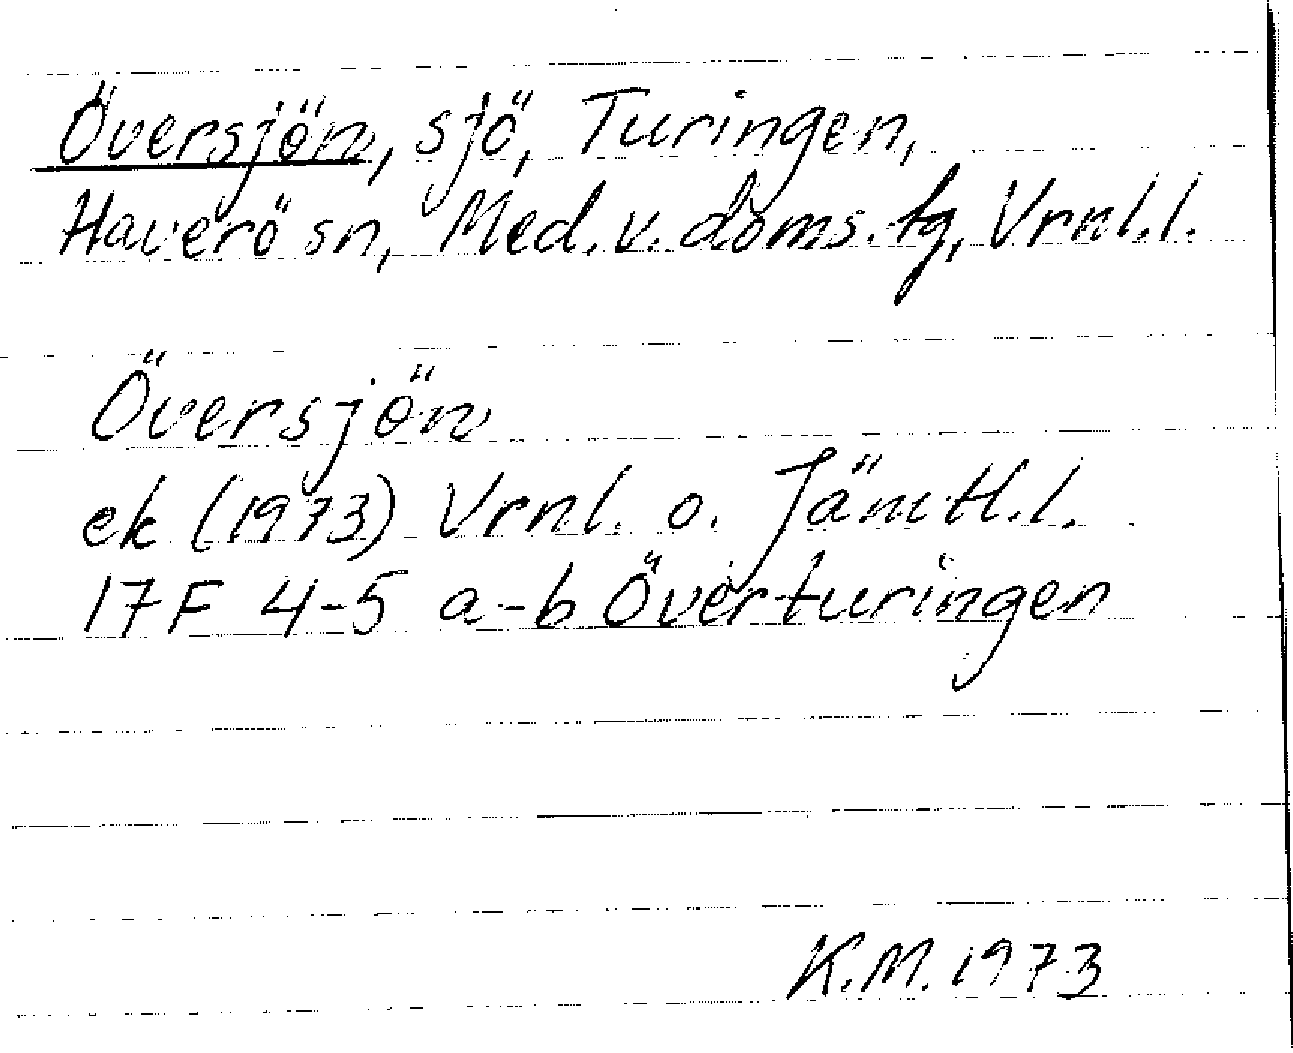 Översjön, sjö, Turingen,
Haverö sn, Med. v. doms. tg, Vrnl. l.
Översjön
ek (1973) Vrnl. o. Jämtl. l.
17F 4-5 a-b Överturingen
K.M. 1973